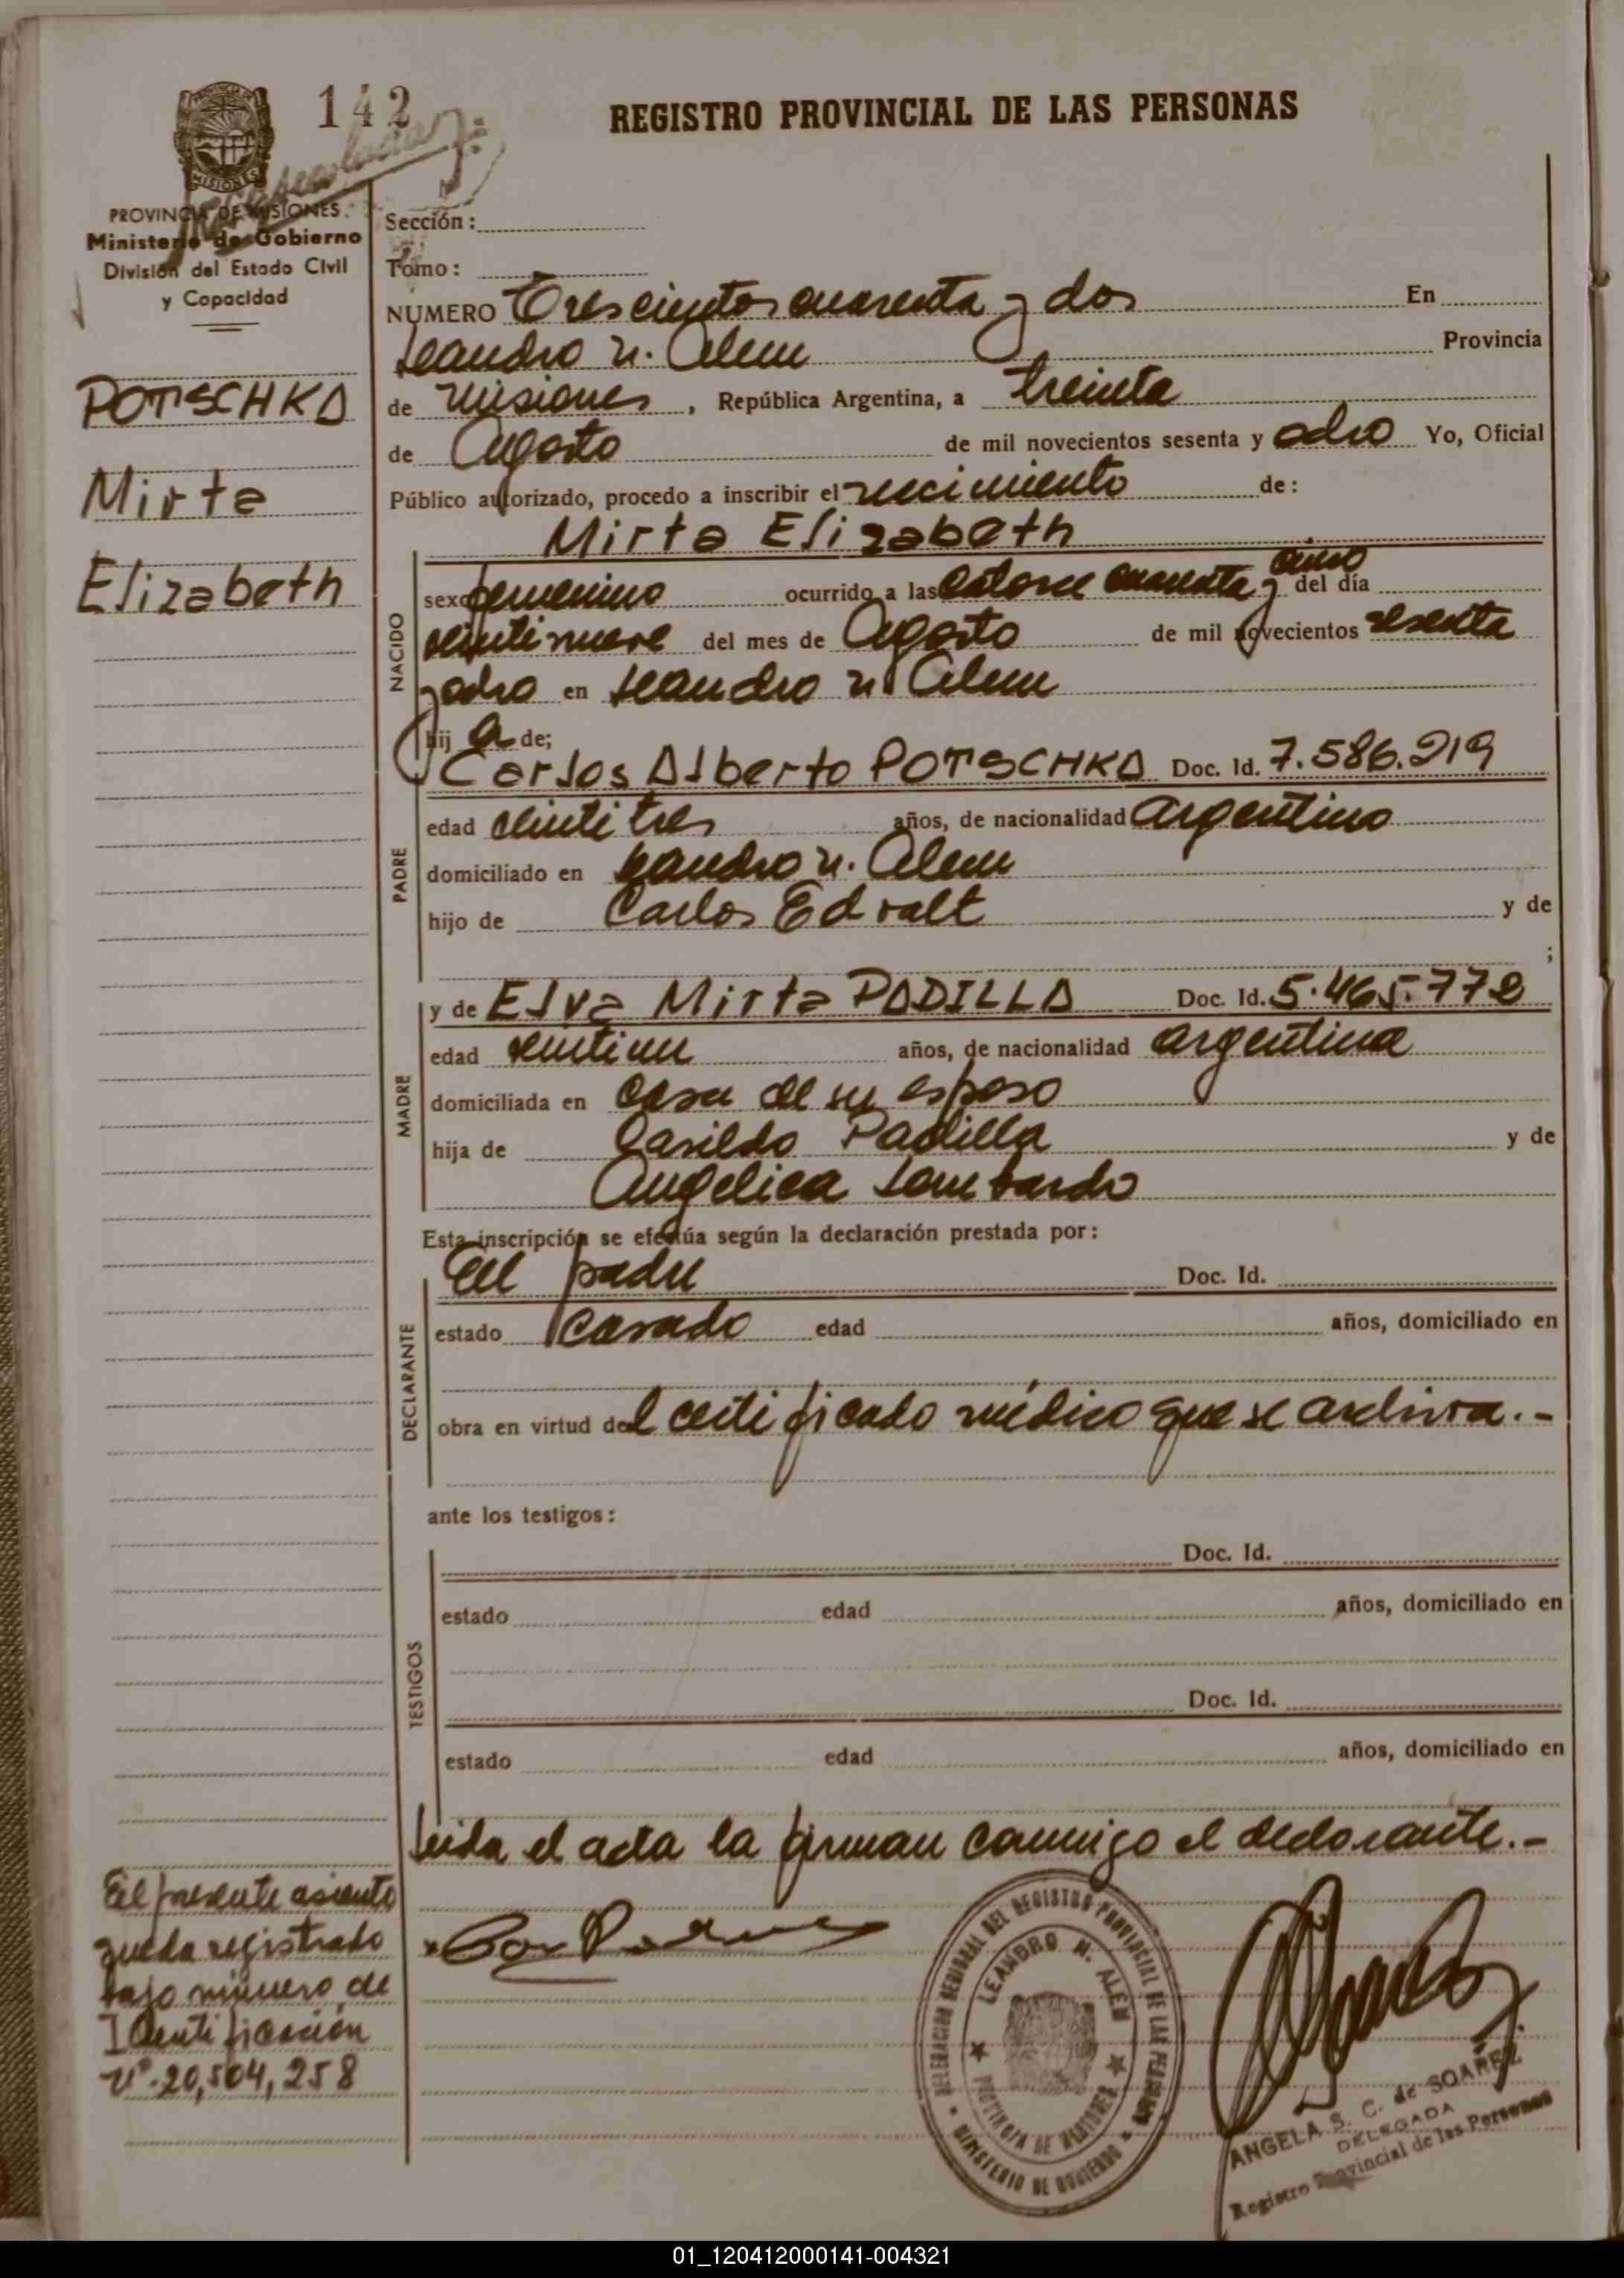 142
REGISTRO PROVINCIAL DE LAS PERSONAS
MISIONES
PROVINCIA DE MISIONES
Ministerio de Gobierno
División del Estado Civil
y Capacidad
Sección:
Tomo:
NUMERO Trescientos cuarenta y dos En
Leandro N. Alem Provincia
de Misiones, República Argentina, a treinta
de Agosto de mil novecientos sesenta y ocho Yo, Oficial
Público autorizado, procedo a inscribir el nacimiento de:
POTSCHKA
Mirta
Elizabeth
NACIDO
Mirta Elizabeth
sexo femenino ocurrido a las catorce cuarenta y cinco del día
veintinueve del mes de Agosto de mil novecientos sesenta
y ocho en Leandro N. Alem
hij a de;
PADRE
Carlos Alberto POTSCHKA Doc. Id. 7.586.219
edad veintitres años, de nacionalidad argentino
domiciliado en Leandro N. Alem
hijo de Carlos Edvalt y de
;
MADRE
y de Elva Mirta PADILLA Doc. Id. 5.465.772
edad veintiun años, de nacionalidad argentina
domiciliada en casa de su esposo
hija de Casildo Padilla y de
Angelica Lombardo
Esta inscripción se efectúa según la declaración prestada por:
DECLARANTE
El padre Doc. Id.
estado casado edad años, domiciliado en
obra en virtud del certificado médico que se archiva.-
ante los testigos:
TESTIGOS
Doc. Id.
estado edad años, domiciliado en
Doc. Id.
estado edad años, domiciliado en
Leida el acta la firman conmigo el declarante.-
El presente asiento
queda registrado
bajo número de
Identificación
Nº. 20,504,258
DELEGACION REGIONAL DEL REGISTRO PROVINCIAL DE LAS PERSONAS
LEANDRO N. ALEM
PROVINCIA DE MISIONES
MINISTERIO DE GOBIERNO
ANGELA S. C. de SOAREZ
DELEGADA
Registro Provincial de las Personas
01_120412000141-004321